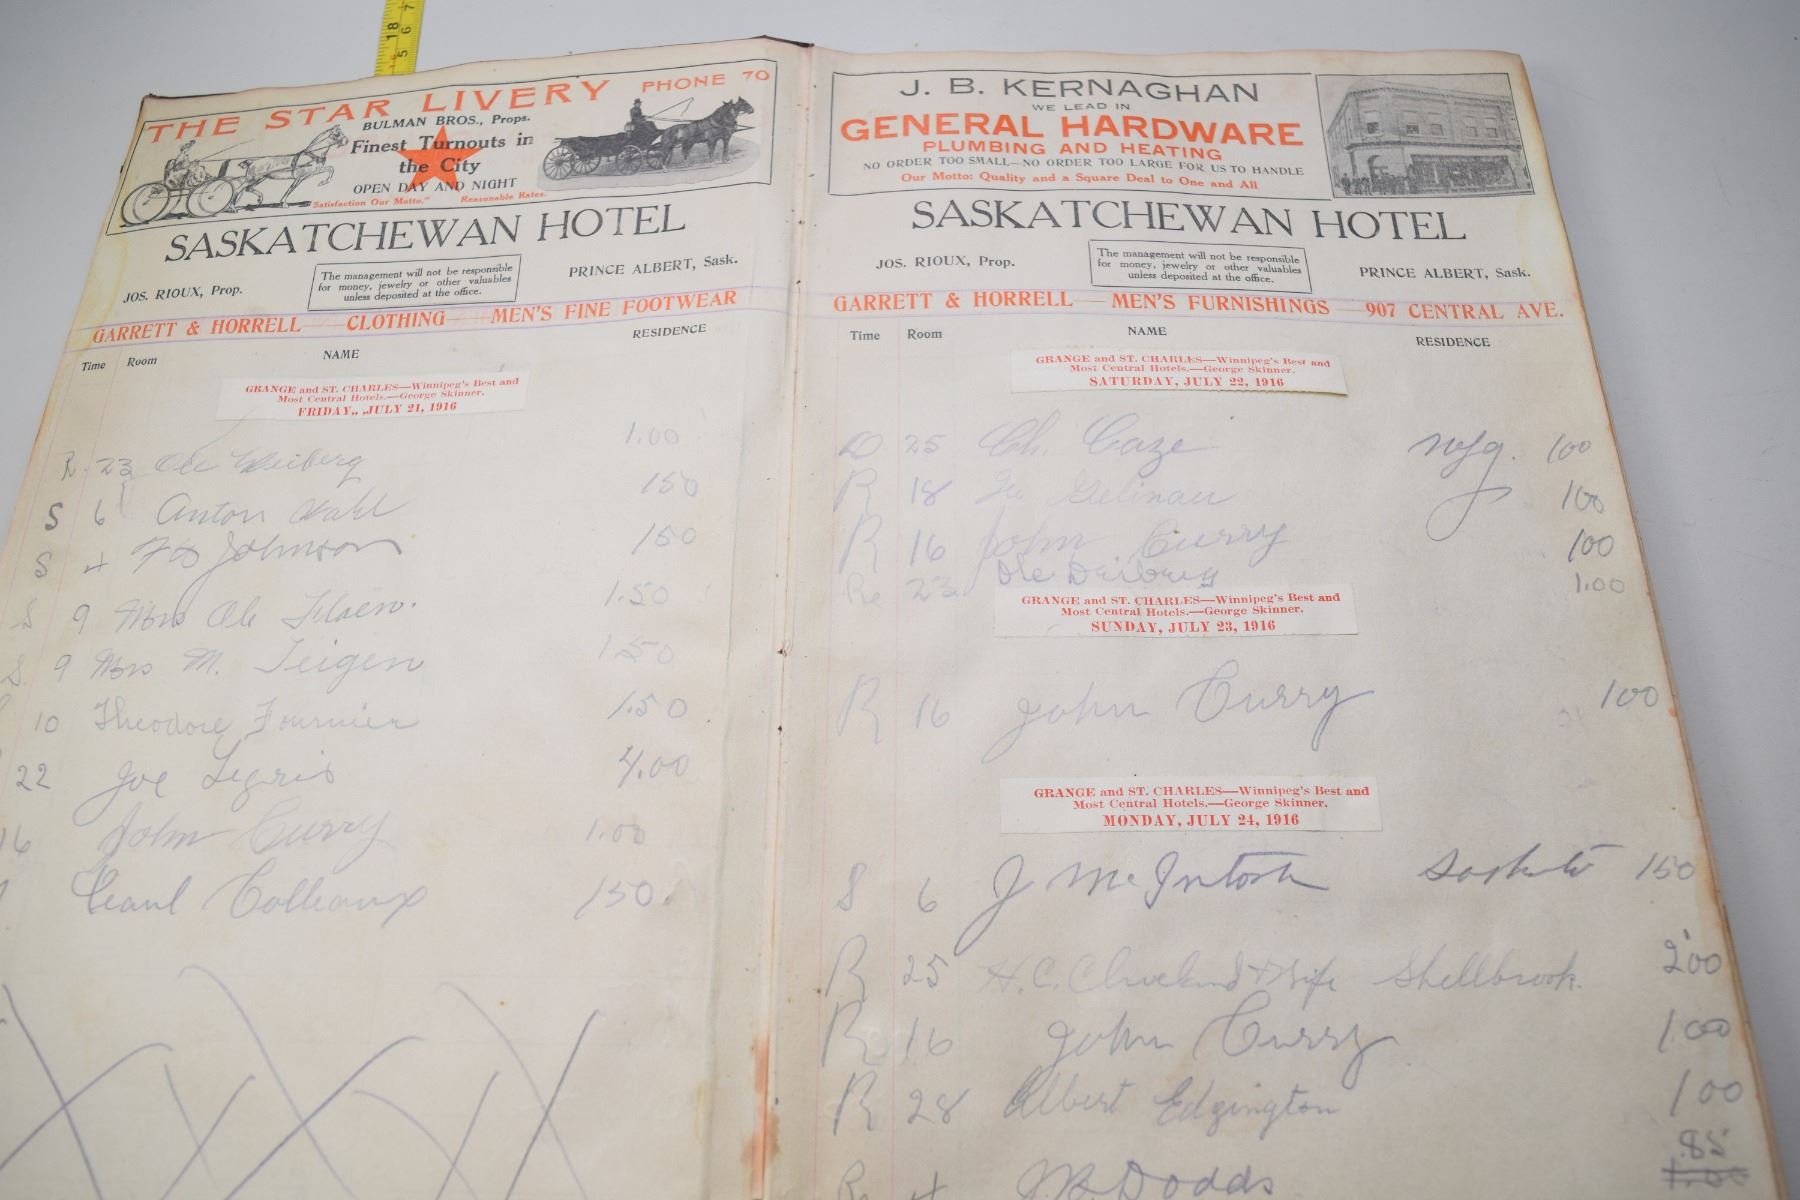 18
5 6 7
THE STAR LIVERY PHONE 70
BULMAN BROS., Props.
Finest Turnouts in
the City
OPEN DAY AND NIGHT
Satisfaction Our Motto." Reasonable Rates.
SASKATCHEWAN HOTEL
JOS. RIOUX, Prop.
The management will not be responsible
for money, jewelry or other valuables
unless deposited at the office.
PRINCE ALBERT, Sask.
GARRETT & HORRELL CLOTHING MEN'S FINE FOOTWEAR
Time Room NAME RESIDENCE
GRANGE and ST. CHARLES—Winnipeg's Best and
Most Central Hotels.—George Skinner.
FRIDAY,, JULY 21, 1916
R 23 Ole 1.00
S 6 Anton 150
S 4 Johnson 150
S 9 Mrs Ole 1.50
S 9 Mrs M. Teigen 1.50
10 Theodore Fournier 1.50
22 Joe Legris 4.00
16 John Curry 1.00
150.
J. B. KERNAGHAN
WE LEAD IN
GENERAL HARDWARE
PLUMBING AND HEATING
NO ORDER TOO SMALL—NO ORDER TOO LARGE FOR US TO HANDLE
Our Motto: Quality and a Square Deal to One and All
SASKATCHEWAN HOTEL
JOS. RIOUX, Prop.
The management will not be responsible
for money, jewelry or other valuables
unless deposited at the office.
PRINCE ALBERT, Sask.
GARRETT & HORRELL MEN'S FURNISHINGS 907 CENTRAL AVE.
Time Room NAME RESIDENCE
GRANGE and ST. CHARLES—Winnipeg's Best and
Most Central Hotels.—George Skinner.
SATURDAY, JULY 22, 1916
D 25 Ch. Caze Wpg. 100
R 18 Gelinau 100
R 16 John Curry 100
Re 23 Ole 1.00
GRANGE and ST. CHARLES—Winnipeg's Best and
Most Central Hotels.—George Skinner.
SUNDAY, JULY 23, 1916
R 16 John Curry 100
GRANGE and ST. CHARLES—Winnipeg's Best and
Most Central Hotels.—George Skinner.
MONDAY, JULY 24, 1916
S 6 J McIntosh 150
R 25 H. C. Cleveland & Wife Shellbrook. 2.00
R 16 John Curry 1.00
R 28 Albert Edgington 1.00
.85
R 4 J B Dodds 1.00